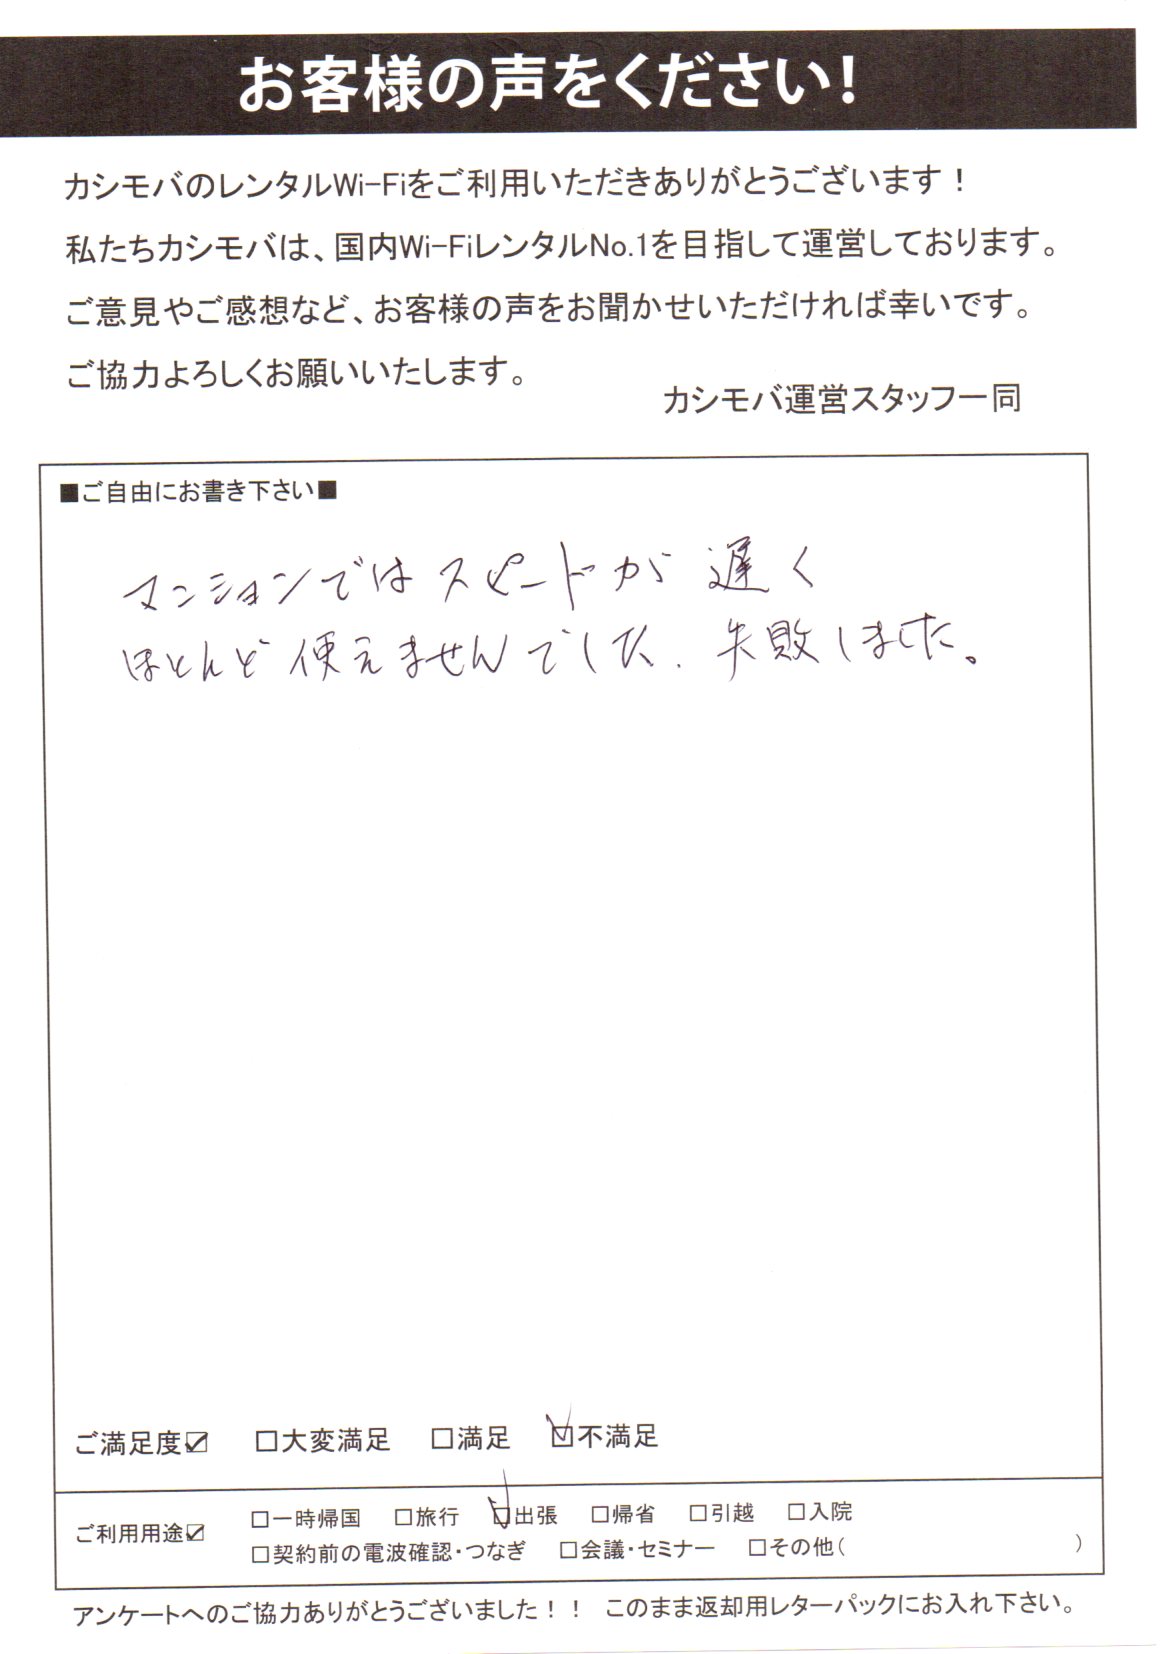 お客様の声をください!
カシモバのレンタルWi-Fiをご利用いただきありがとうございます！
私たちカシモバは、国内Wi-FiレンタルNo.1を目指して運営しております。
ご意見やご感想など、お客様の声をお聞かせいただければ幸いです。
ご協力よろしくお願いいたします。
カシモバ運営スタッフ一同
■ご自由にお書き下さい■
マンションではスピードが遅く
ほとんど使えませんでした. 失敗しました。
ご満足度☑ □大変満足 □満足 ☑不満足
ご利用用途☑ □一時帰国 □旅行 ☑出張 □帰省 □引越 □入院
□契約前の電波確認・つなぎ □会議・セミナー □その他( )
アンケートへのご協力ありがとうございました！！ このまま返却用レターパックにお入れ下さい。